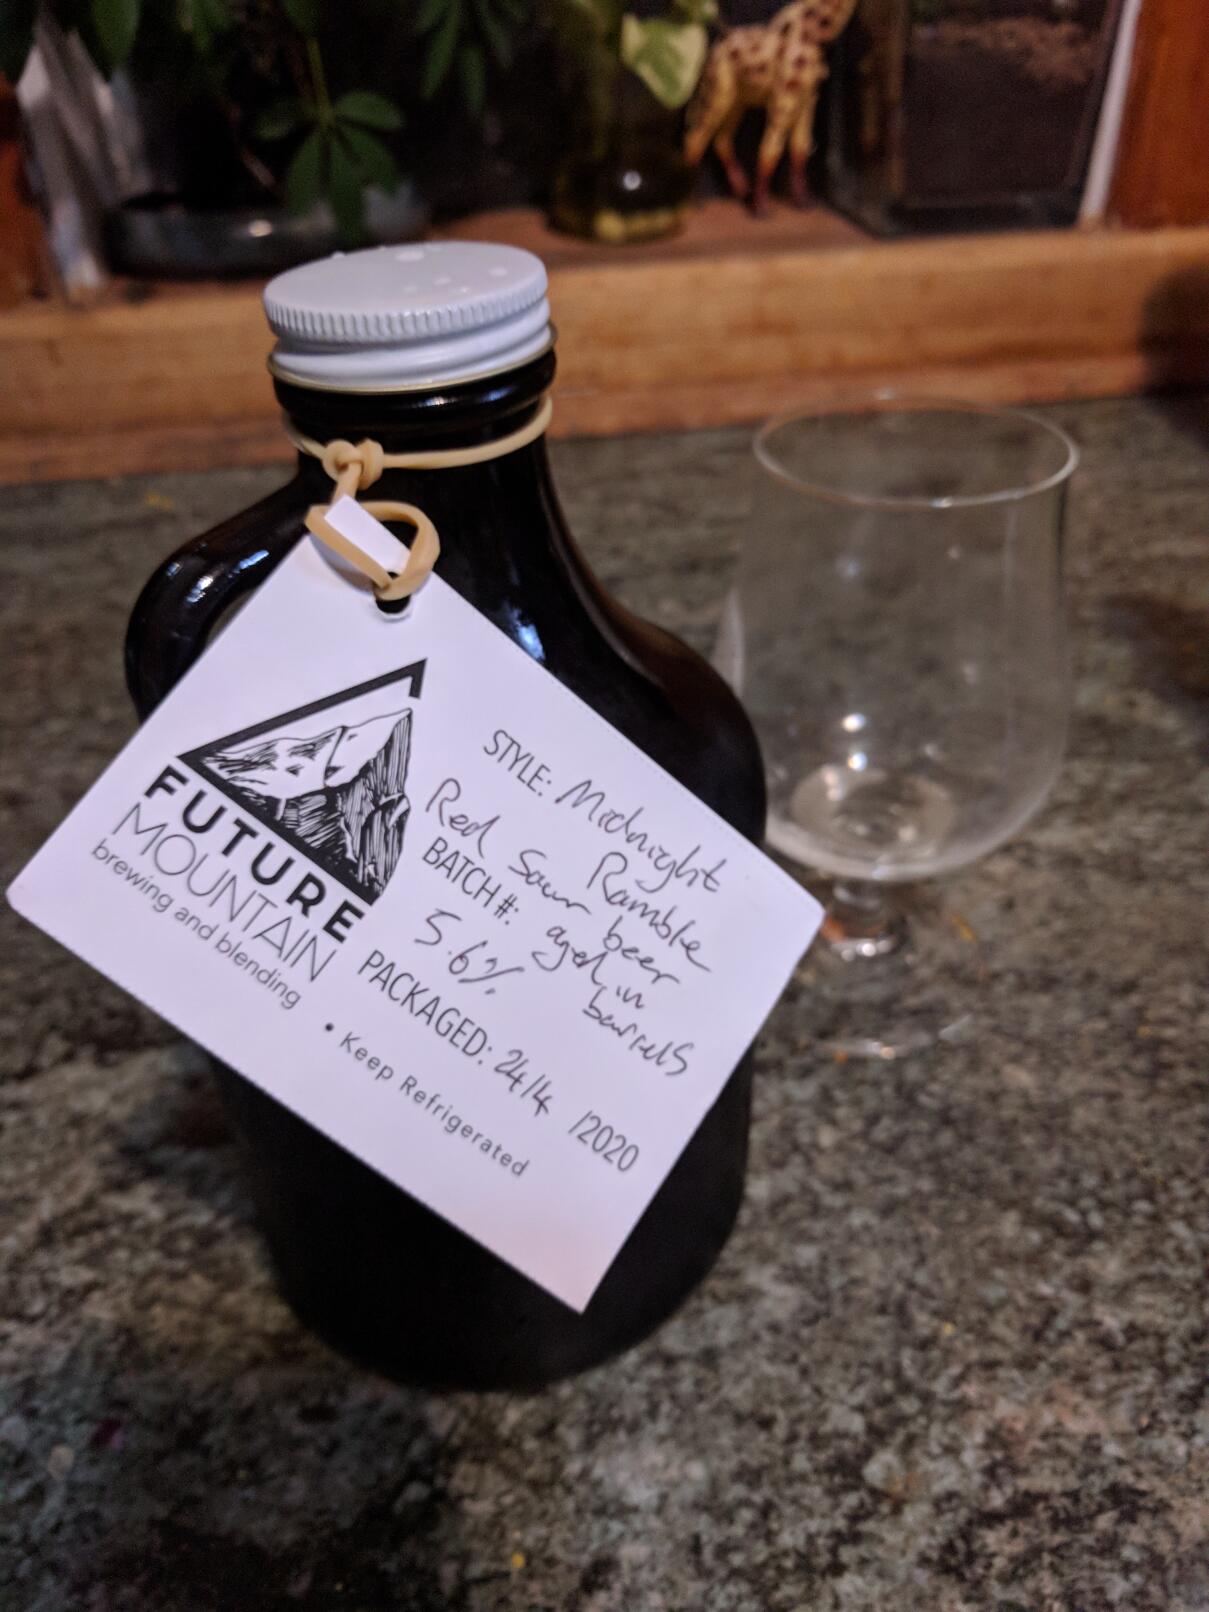 FUTURE
MOUNTAIN
brewing and blending
STYLE: Midnight
Ramble
Red Sour beer
BATCH#: aged in
barrels
5.6%
PACKAGED: 24/4 /2020
• Keep Refrigerated